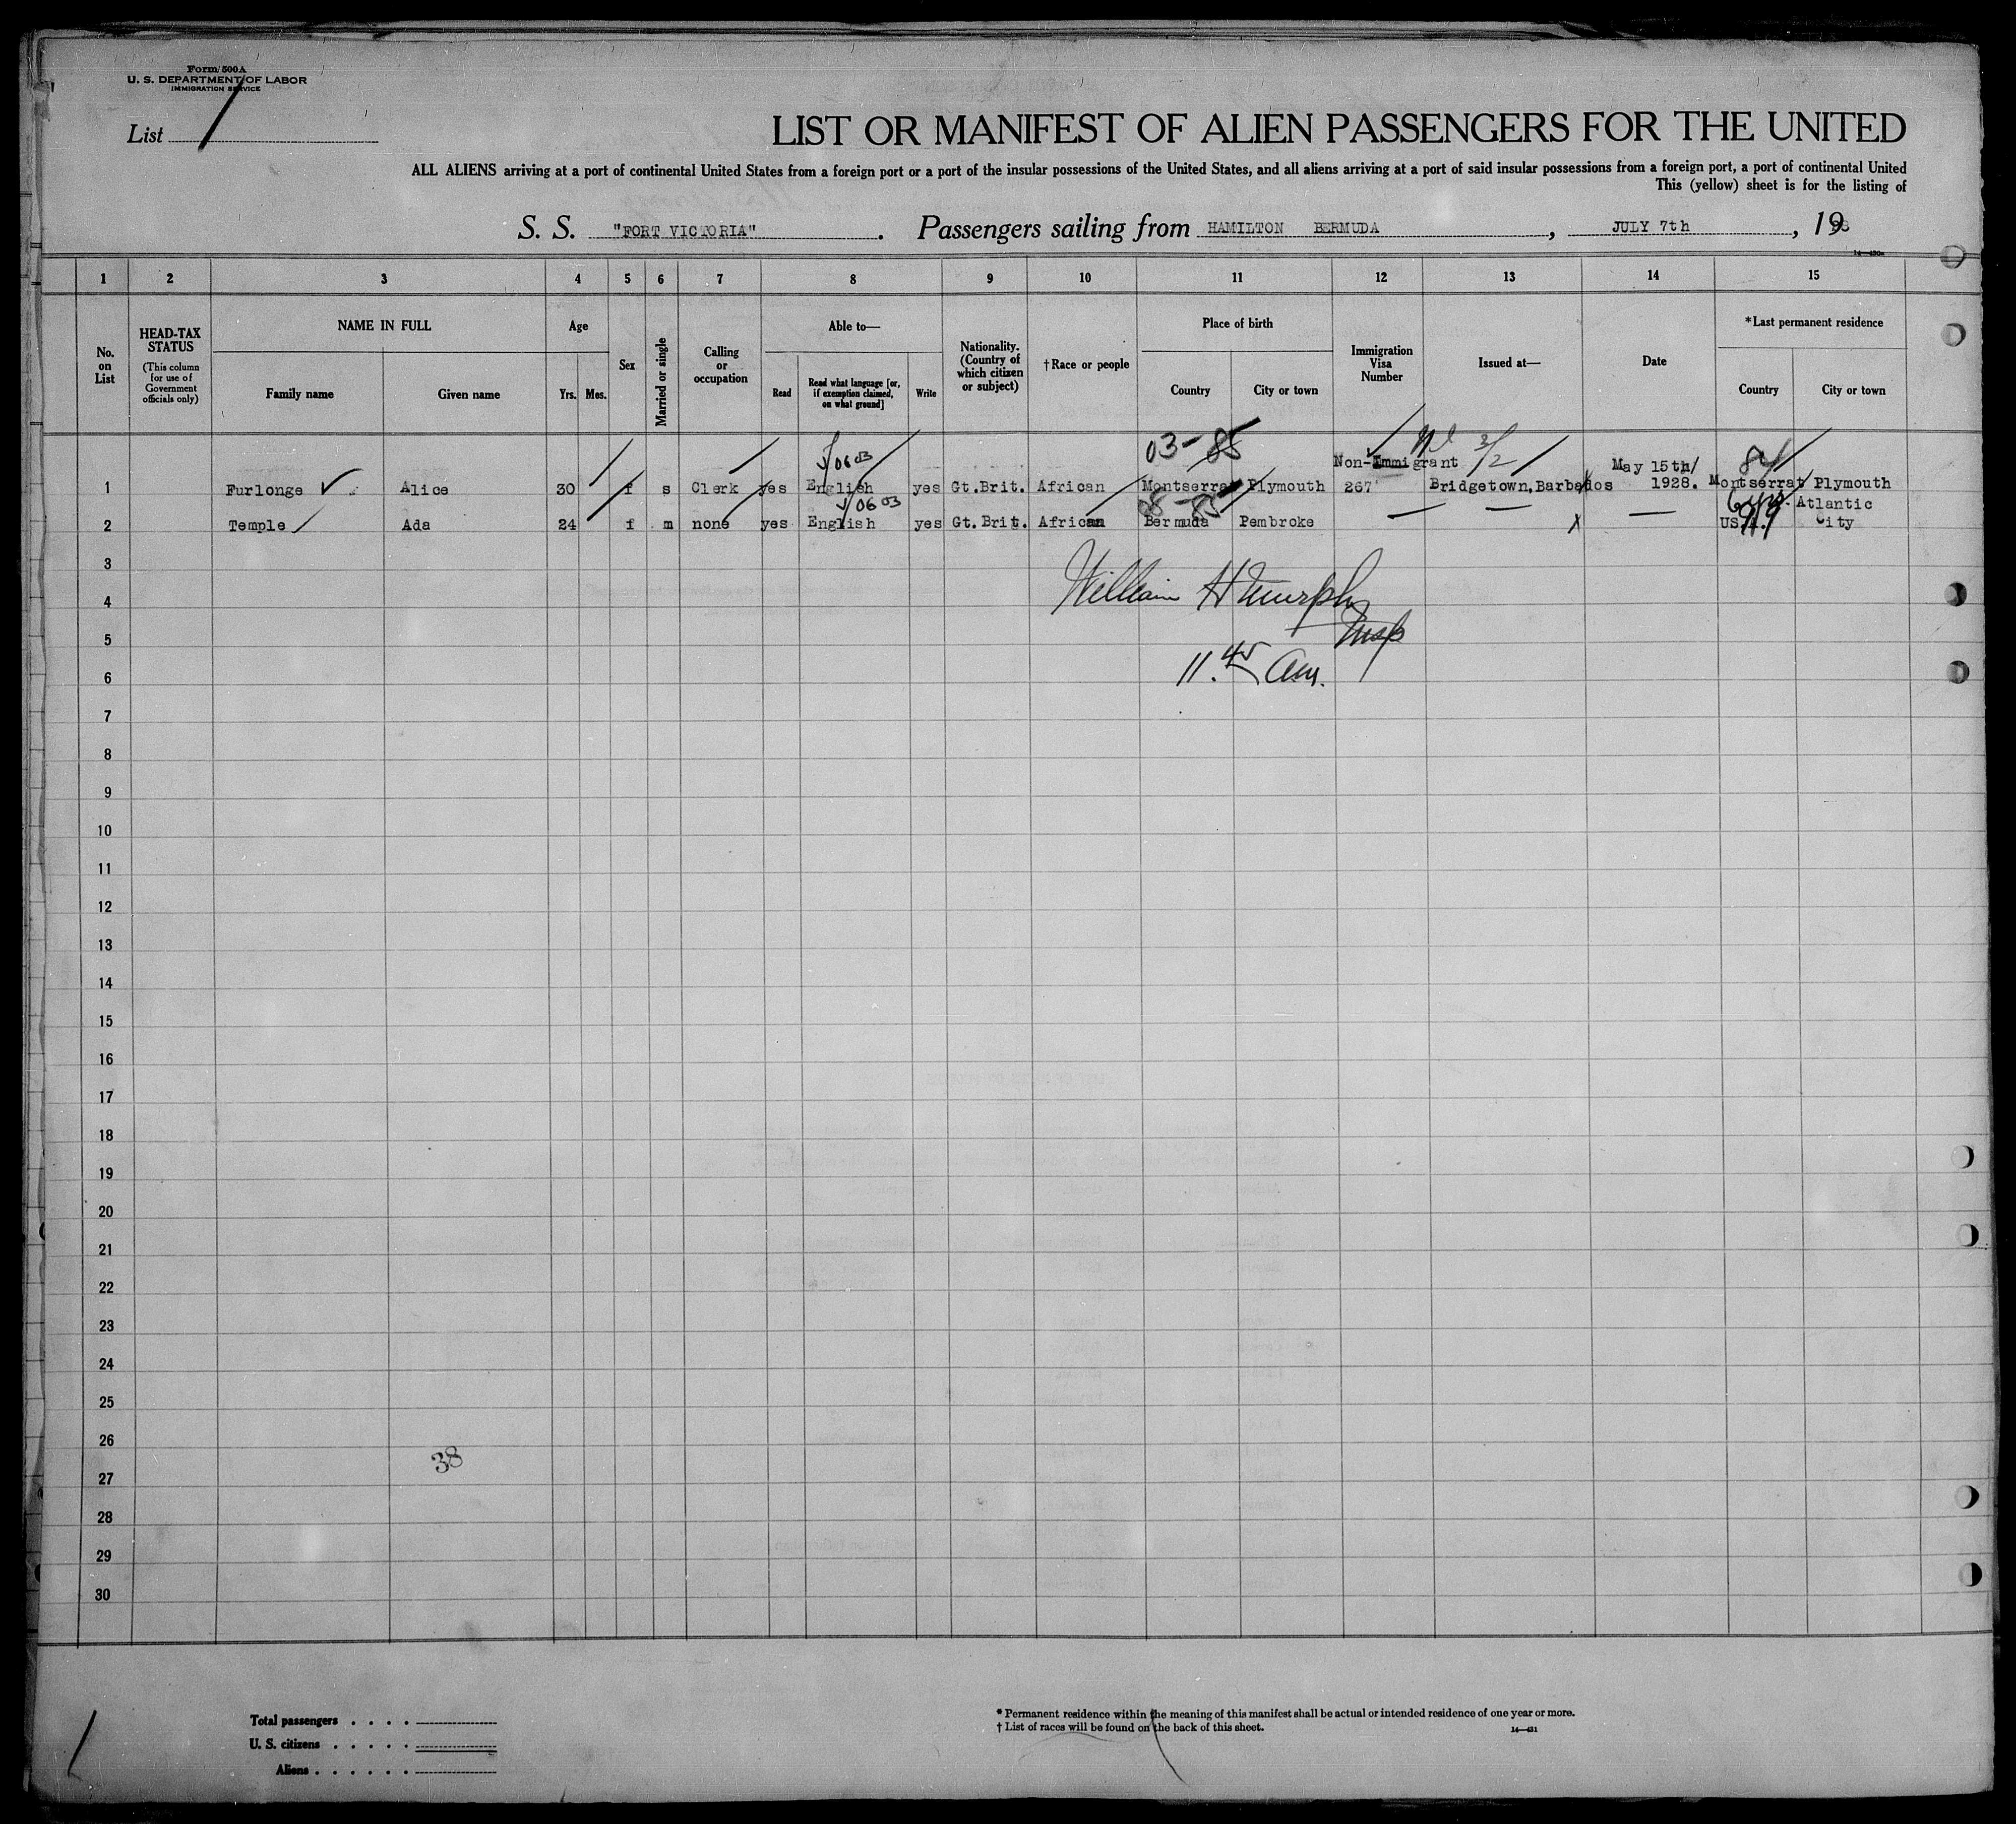 Form 500A
U. S. DEPARTMENT OF LABOR
IMMIGRATION SERVICE
List 1
LIST OR MANIFEST OF ALIEN PASSENGERS FOR THE UNITED
ALL ALIENS arriving at a port of continental United States from a foreign port or a port of the insular possessions of the United States, and all aliens arriving at a port of said insular possessions from a foreign port, a port of continental United
This (yellow) sheet is for the listing of
S. S. "FORT VICTORIA". Passengers sailing from HAMILTON BERMUDA, JULY 7th, 19
1 2 3 4 5 6 7 8 9 10 11 12 13 14 15
No. on List
HEAD-TAX STATUS
(This column for use of Government officials only)
NAME IN FULL
Family name
Given name
Age
Yrs. Mos.
Sex
Married or single
Calling or occupation
Able to—
Read
Read what language [or, if exemption claimed, on what ground]
Write
Nationality. (Country of which citizen or subject)
†Race or people
Place of birth
Country
City or town
Immigration Visa Number
Issued at—
Date
*Last permanent residence
Country
City or town
03-85
06 03
84
1 Furlonge Alice 30 f s Clerk yes English yes Gt.Brit. African Montserrat Plymouth Non-Immigrant 267 Bridgetown, Barbados May 15th/ 1928. Montserrat Plymouth
06 03
08-85
2 Temple Ada 24 f m none yes English yes Gt.Brit. African Bermuda Pembroke — — — Atlantic City
William H Murphy
Insp
11.45 am.
3
4
5
6
7
8
9
10
11
12
13
14
15
16
17
18
19
20
21
22
23
24
25
26
38
27
28
29
30
Total passengers . . . .
U. S. citizens . . . . .
Aliens . . . . . .
* Permanent residence within the meaning of this manifest shall be actual or intended residence of one year or more.
† List of races will be found on the back of this sheet.
14—431